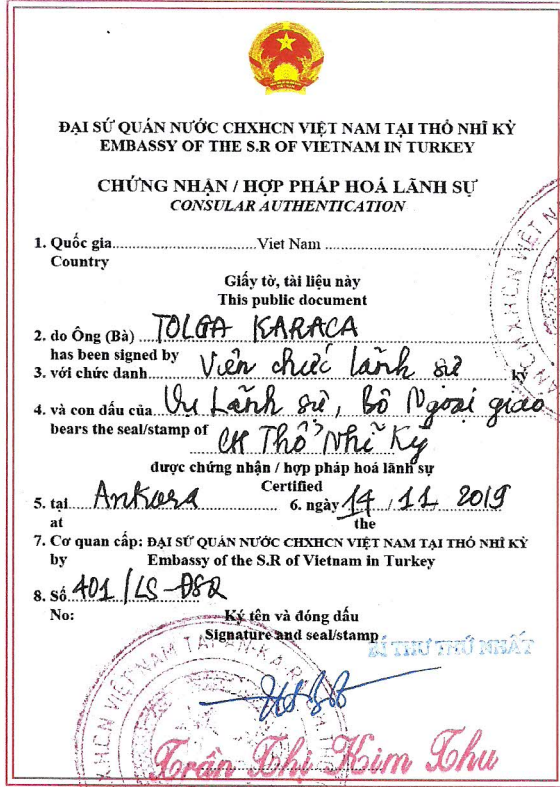 ĐẠI SỨ QUÁN NƯỚC CHXHCN VIỆT NAM TẠI THỔ NHĨ KỲ
EMBASSY OF THE S.R OF VIETNAM IN TURKEY
CHỨNG NHẬN / HỢP PHÁP HOÁ LÃNH SỰ
CONSULAR AUTHENTICATION
1. Quốc gia..........Viet Nam ..........
Country
Giấy tờ, tài liệu này
This public document
2. do Ông (Bà) TOLGA KARACA
has been signed by
3. với chức danh Viên chức lãnh sự ký
4. và con dấu của Vụ Lãnh sự, Bộ Ngoại giao
bears the seal/stamp of CH Thổ Nhĩ Kỳ
được chứng nhận / hợp pháp hoá lãnh sự
Certified
5. tại Ankara 6. ngày 14.11.2019
at the
7. Cơ quan cấp: ĐẠI SỨ QUÁN NƯỚC CHXHCN VIỆT NAM TẠI THỔ NHĨ KỲ
by Embassy of the S.R of Vietnam in Turkey
8. Số 401/LS-ĐSQ
No: Ký tên và đóng dấu
Signature and seal/stamp
BÍ THƯ THỨ NHẤT
Trần Thị Kim Thu